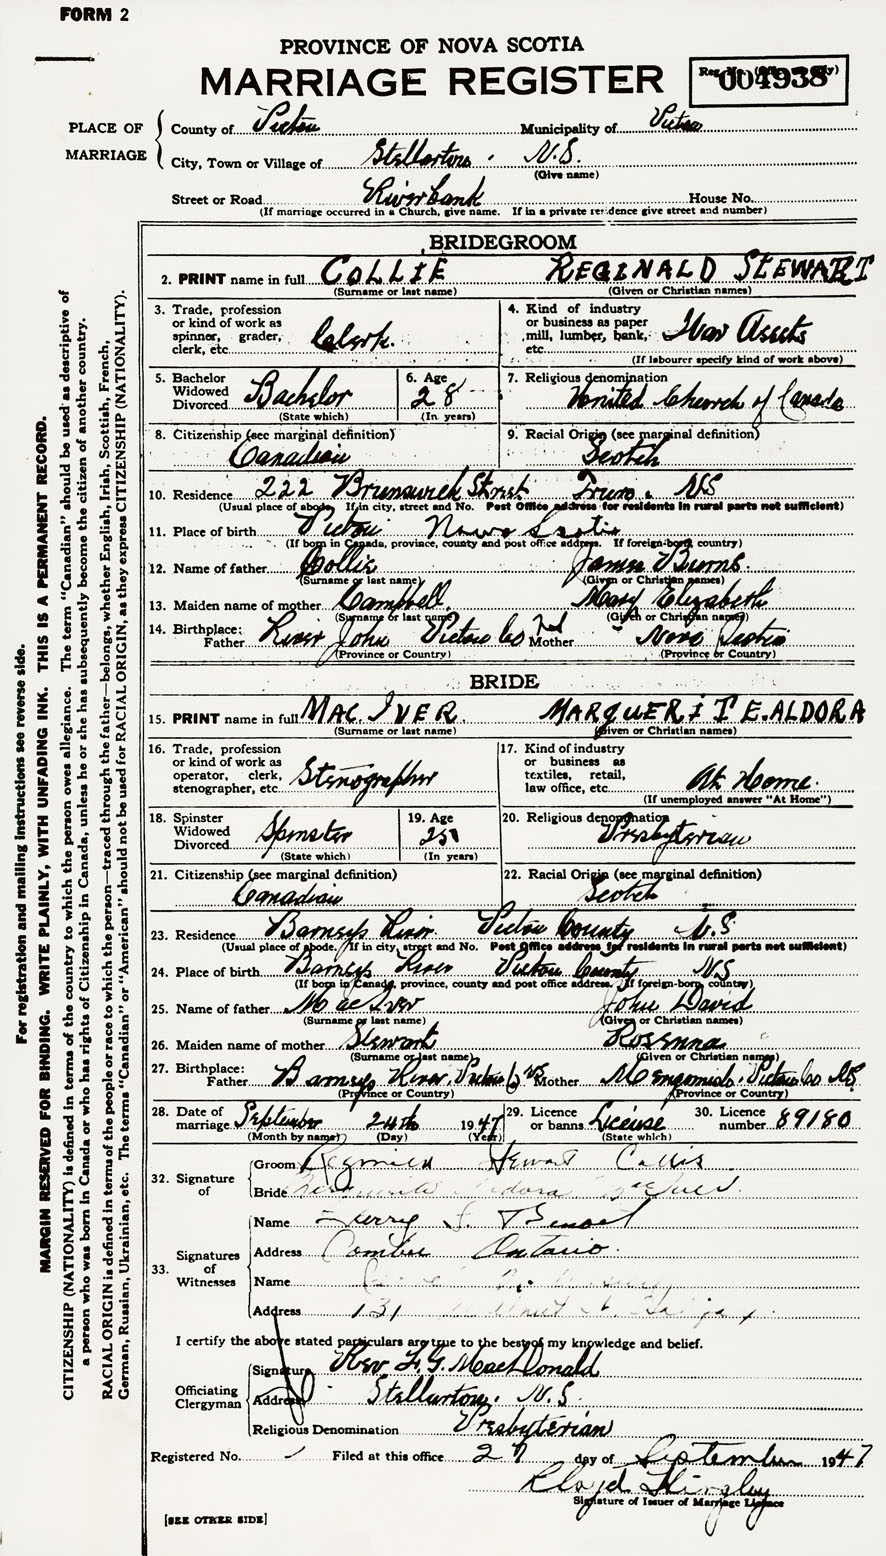 FORM 2
PROVINCE OF NOVA SCOTIA
MARRIAGE REGISTER
004938
PLACE OF MARRIAGE
County of Pictou Municipality of Pictou
City, Town or Village of Stellarton. N.S.
(Give name)
Street or Road Riverbank House No.
(If marriage occurred in a Church, give name. If in a private residence give street and number)
BRIDEGROOM
2. PRINT name in full COLLIE REGINALD STEWART
(Surname or last name) (Given or Christian names)
3. Trade, profession or kind of work as spinner, grader, clerk, etc. Clerk.
4. Kind of industry or business as paper mill, lumber, bank, etc. War Assets
(If labourer specify kind of work above)
5. Bachelor Widowed Divorced Bachelor
(State which)
6. Age 28
(In years)
7. Religious denomination United Church of Canada
8. Citizenship (see marginal definition) Canadian
9. Racial Origin (see marginal definition) Scotch
10. Residence 222 Brunswick Street Truro. NS
(Usual place of abode. If in city, street and No. Post Office address for residents in rural parts not sufficient)
11. Place of birth Pictou Nova Scotia
(If born in Canada, province, county and post office address. If foreign-born, country)
12. Name of father Collie James Burns.
(Surname or last name) (Given or Christian names)
13. Maiden name of mother Campbell. Mary Elizabeth
(Surname or last name) (Given or Christian names)
14. Birthplace: Father River John Pictou Co Mother Nova Scotia
(Province or Country) (Province or Country)
BRIDE
15. PRINT name in full MAC.IVER. MARGUERITE.ALDORA
(Surname or last name) (Given or Christian names)
16. Trade, profession or kind of work as operator, clerk, stenographer, etc. Stenographer
17. Kind of industry or business as textiles, retail, law office, etc. At Home.
(If unemployed answer "At Home")
18. Spinster Widowed Divorced Spinster
(State which)
19. Age 25
(In years)
20. Religious denomination Presbyterian
21. Citizenship (see marginal definition) Canadian
22. Racial Origin (see marginal definition) Scotch
23. Residence Barneys River Pictou County N.S
(Usual place of abode. If in city, street and No. Post Office address for residents in rural parts not sufficient)
24. Place of birth Barneys River Pictou County N.S
(If born in Canada, province, county and post office address. If foreign-born, country)
25. Name of father MacIver John David
(Surname or last name) (Given or Christian names)
26. Maiden name of mother Stewart Rosenna
(Surname or last name) (Given or Christian names)
27. Birthplace: Father Barneys River, Pictou Co NS Mother Pictou Co NS
(Province or Country) (Province or Country)
28. Date of marriage September 24th 1947
(Month by name) (Day) (Year)
29. Licence or banns License
(State which)
30. Licence number 89180
32. Signature of
Groom Reginald Stewart Collie
Bride
33. Signatures of Witnesses
Name
Address Comber Ontario.
Name
Address 131 Halifax
I certify the above stated particulars are true to the best of my knowledge and belief.
Officiating Clergyman
Signature Rev F.G. MacDonald
Address Stellarton. N.S.
Religious Denomination Presbyterian
Registered No. Filed at this office 27 day of September 1947
Lloyd
Signature of Issuer of Marriage Licence
[SEE OTHER SIDE]
For registration and mailing instructions see reverse side.
MARGIN RESERVED FOR BINDING. WRITE PLAINLY, WITH UNFADING INK. THIS IS A PERMANENT RECORD.
CITIZENSHIP (NATIONALITY) is defined in terms of the country to which the person owes allegiance. The term "Canadian" should be used as descriptive of
a person who was born in Canada or who has rights of Citizenship in Canada, unless he or she has subsequently become the citizen of another country.
RACIAL ORIGIN is defined in terms of the people or race to which the person—traced through the father—belongs, whether English, Irish, Scottish, French,
German, Russian, Ukrainian, etc. The terms "Canadian" or "American" should not be used for RACIAL ORIGIN, as they express CITIZENSHIP (NATIONALITY).